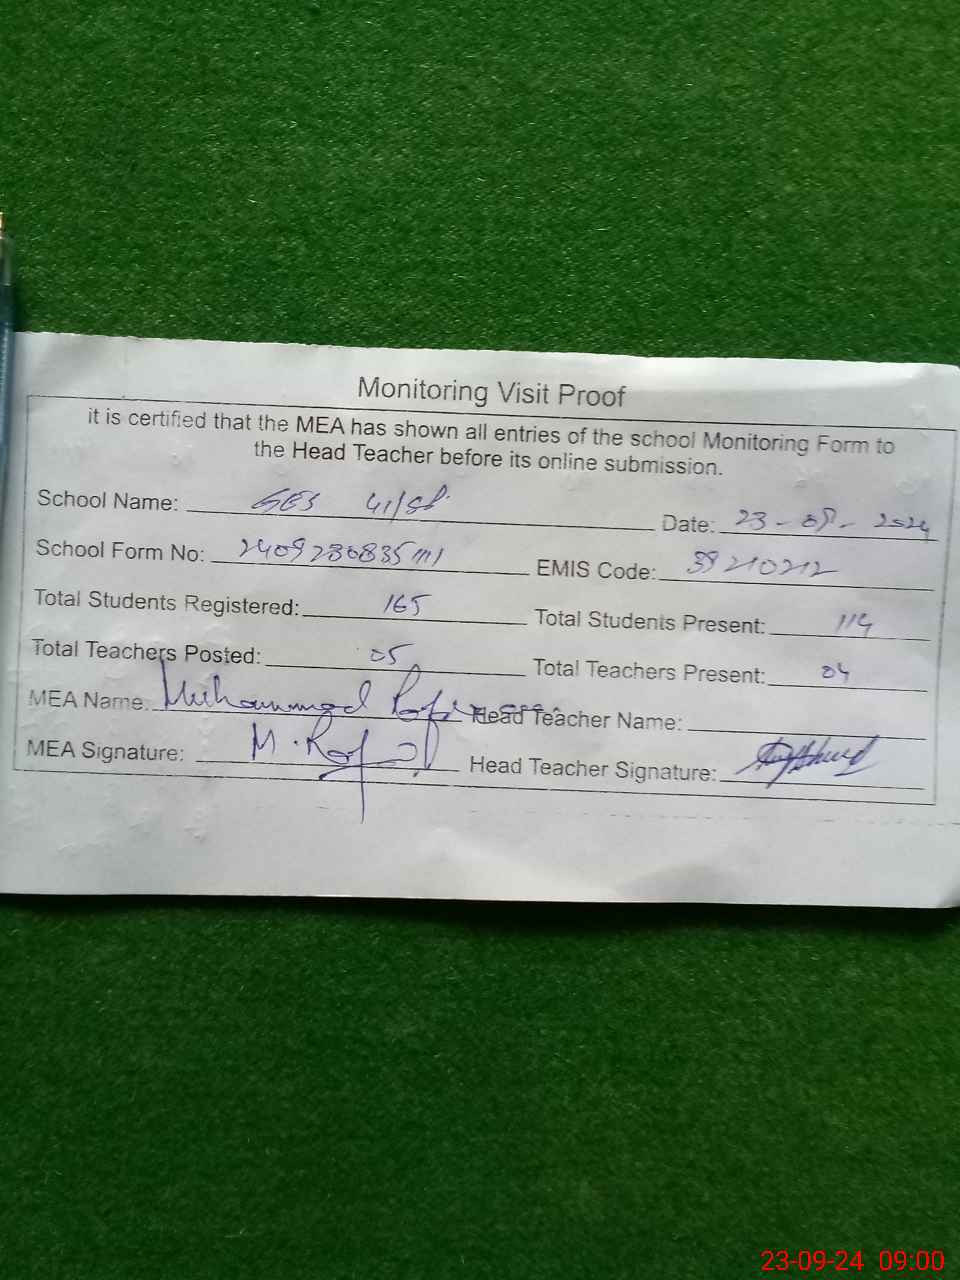 Monitoring Visit Proof
it is certified that the MEA has shown all entries of the school Monitoring Form to
the Head Teacher before its online submission.
School Name: GES 41/SP Date: 23-09-2024
School Form No: EMIS Code: 39210212
Total Students Registered: 165 Total Students Present: 114
Total Teachers Posted: 05 Total Teachers Present: 04
MEA Name: Muhammad Head Teacher Name:
MEA Signature: Head Teacher Signature:
23-09-24 09:00